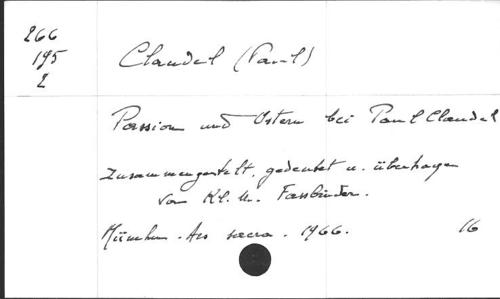 266
195
2
Claudel (Paul)
Passion und Ostern bei Paul Claudel
zusammengestellt, gedeutet u. übertragen
von Kl. M. Fassbinder.
München. Ars sacra. 1966. 16